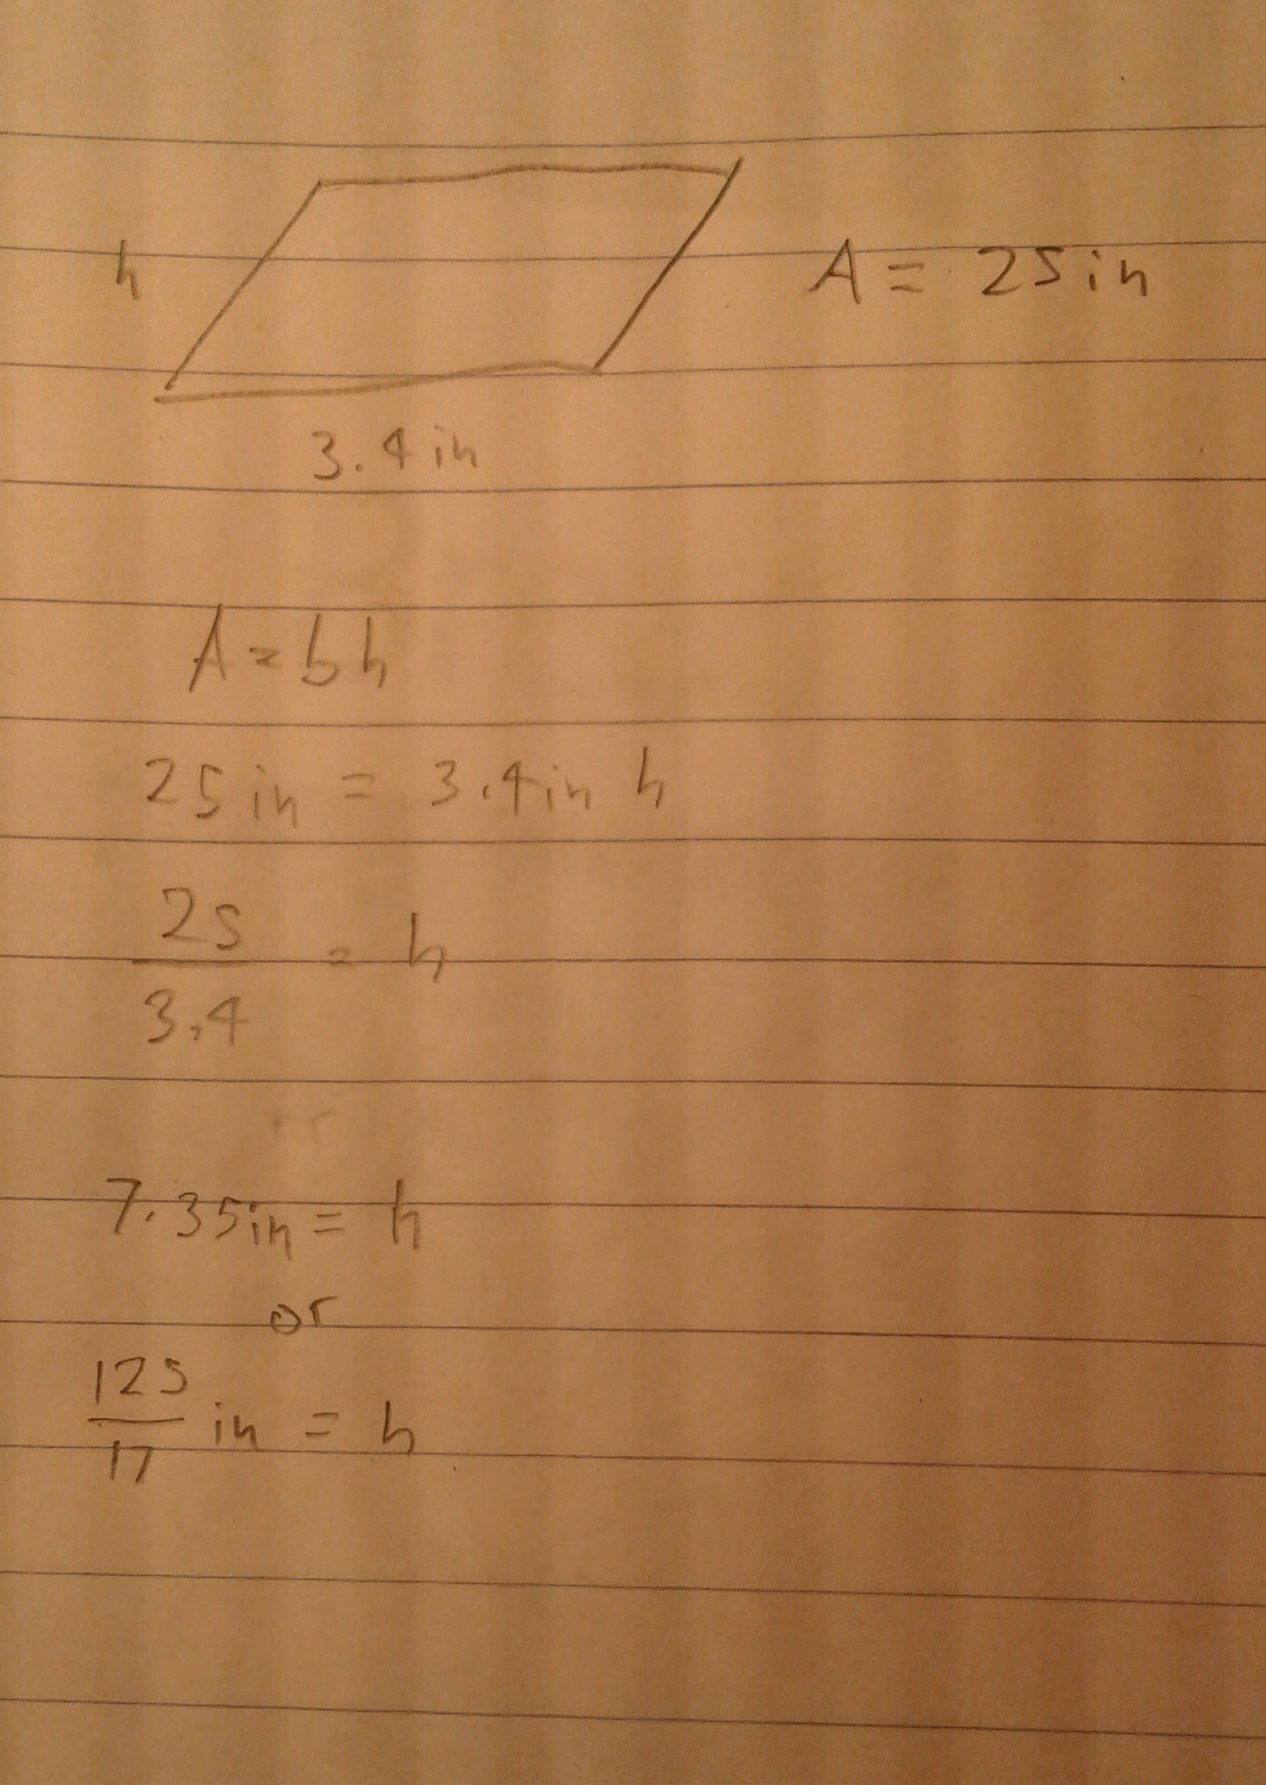 h
A = 25in
3.4in
A = bh
25in = 3.4in h
25
3.4
= h
7.35in = h
or
125
17
in = h